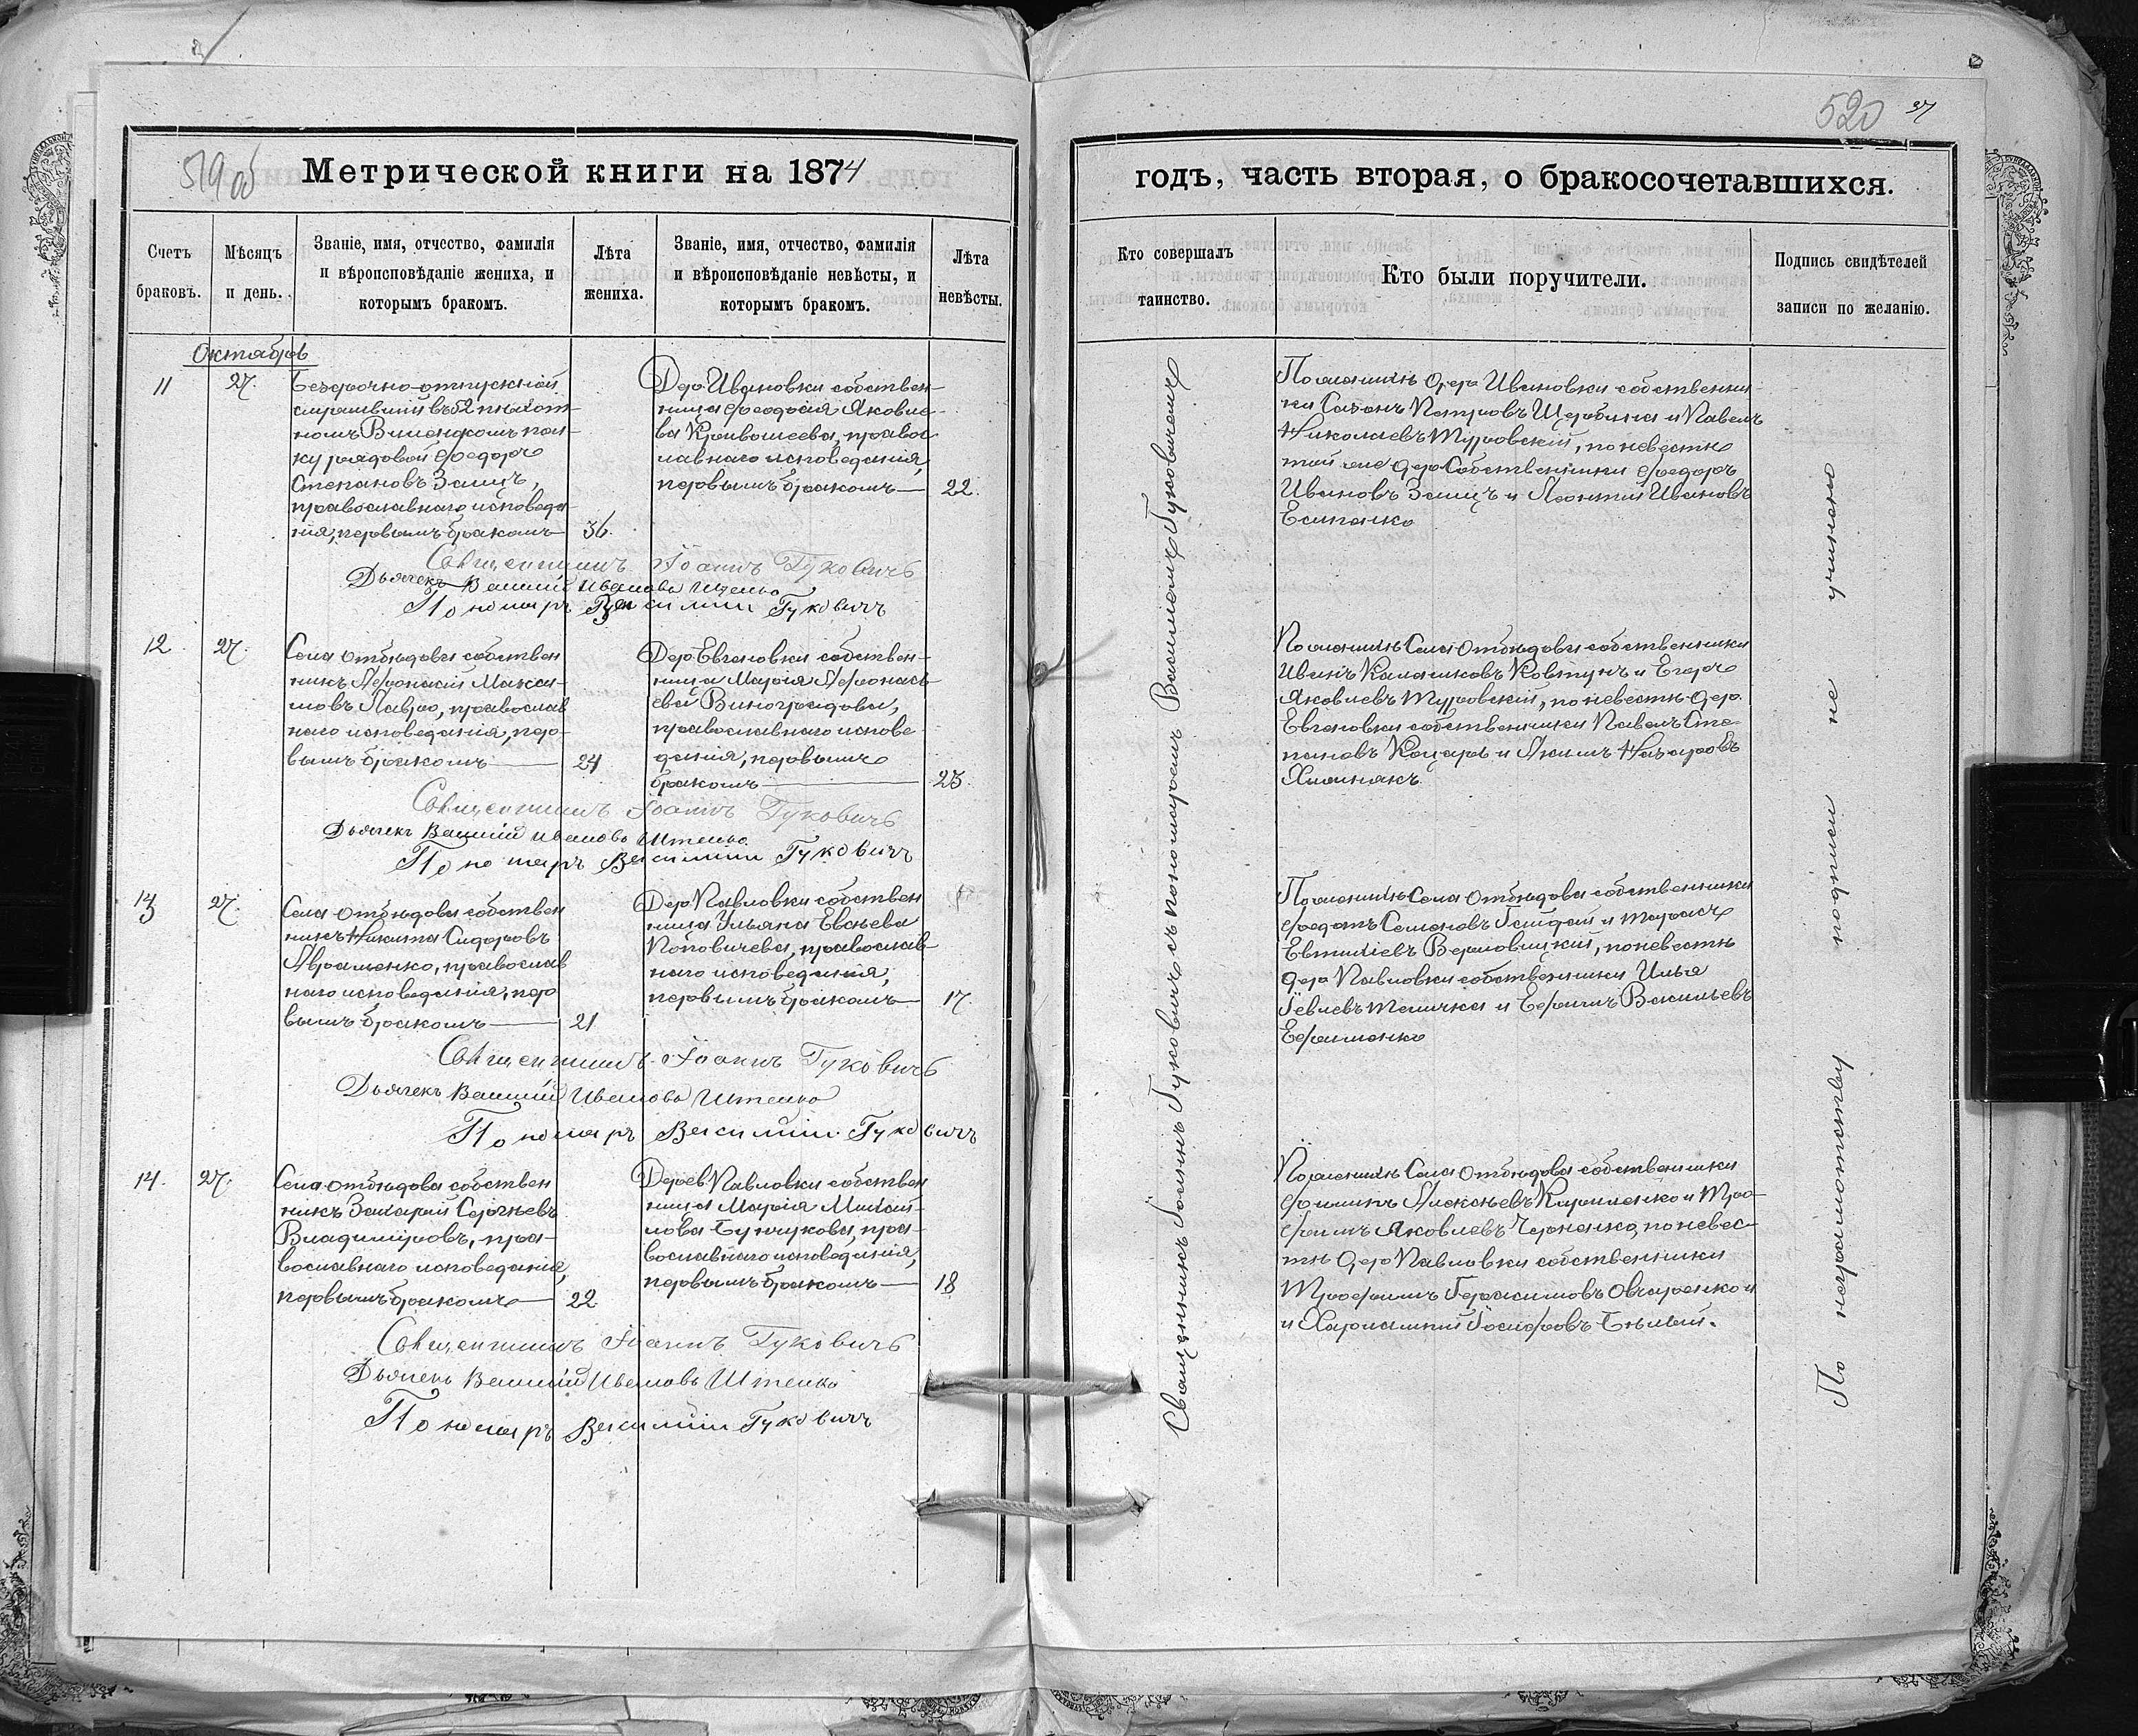 519 об
Метрической книги на 1874
Счетъ браковъ.
Мѣсяцъ и день.
Званіе, имя, отчество, фамилія
и вѣроисповѣданіе жениха, и
которымъ бракомъ.
Лѣта
жениха.
Званіе, имя, отчество, фамилія
и вѣроисповѣданіе невѣсты, и
которымъ бракомъ.
Лѣта
невѣсты.
Октябрь
11
27.
Безсрочно-отпускной
служившій въ 52 пѣхот-
номъ Виленскомъ пол-
ку рядовой Феодоръ
Степановъ Заяцъ,
православнаго исповеда-
нія, первымъ бракомъ
36.
Дер. Ивановки собствен-
ница Феодосія Яковле-
ва Кривошеева, правос
лавнаго исповеданія,
первымъ бракомъ
22.
Священникъ Іоаннъ Гуковичъ
Дьячекъ Василій Ивановъ Итенко
Пономарь Василій Гуковичъ
12.
27.
Села Отбѣдова собствен
никъ Афонасій Макси-
мовъ Лавро, православ
наго исповеданія, пер-
вымъ бракомъ
24
Дер. Евгеновки собствен-
ница Марія Афонась-
ева Виноградова,
православнаго испове
данія, первымъ
бракомъ
23.
Священникъ Іоаннъ Гуковичъ
Дьячекъ Василій Ивановъ Итенко
Пономарь Василій Гуковичъ
13
27.
Села Отбѣдова собствен
никъ Никита Сидоровъ
Авраменко, православ
наго исповеданія, пер
вымъ бракомъ
21
Дер. Павловки собствен
ница Ульяна Евсѣева
Поповичева, православ-
наго исповеданія,
первымъ бракомъ
17.
Священникъ Іоаннъ Гуковичъ
Дьячекъ Василій Ивановъ Итенко
Пономарь Василій Гуковичъ
14.
27.
Села Отбѣдова собствен
никъ Захарій Сергѣевъ
Владиміровъ, пра-
вославнаго исповеданія,
первымъ бракомъ
22
Дерев. Павловки собствен
ница Марія Михай-
лова Бунчукова, пра-
вославнаго исповеданія,
первымъ бракомъ
18
Священникъ Іоаннъ Гуковичъ
Дьячекъ Василій Ивановъ Итенко
Пономарь Василій Гуковичъ
520
27
годъ, часть вторая, о бракосочетавшихся.
Кто совершалъ
таинство.
Кто были поручители.
Подпись свидѣтелей
записи по желанію.
Священникъ Іоаннъ Гуковичъ съ пономаремъ Василіемъ Гуковичемъ
По женихѣ дер. Ивановки собственни-
ки Сазонъ Петровъ Щербина и Павелъ
Николаевъ Туровскій, по невестѣ
той же дер. Собственники Феодоръ
Ивановъ Заяцъ и Леонтій Ивановъ
Есипенко
По женихѣ Села Отбѣдова собственники
Иванъ Калениковъ Ковтунъ и Егоръ
Яковлевъ Туровскій, по невестѣ дер.
Евгеновки собственники Павелъ Сте-
пановъ Кочаръ и Акимъ Назаровъ
По женихѣ Села Отбѣдова собственники
Федотъ Семеновъ Гайдай и Тарасъ
Евтихіевъ Верловицкій, по невестѣ
дер. Павловки собственники Илья
Іевлевъ Темичка и Ефимъ Васильевъ
Ефименко
По женихѣ Села Отбѣдова собственники
Филипъ Алексѣевъ Кириленко и Тро-
фимъ Яковлевъ Черненко, по невес-
тѣ дер. Павловки собственники
Трофимъ Герасимовъ Овчаренко и
и Харлампій Іосифовъ Бѣлый.
По неграмотству подписи не учинено